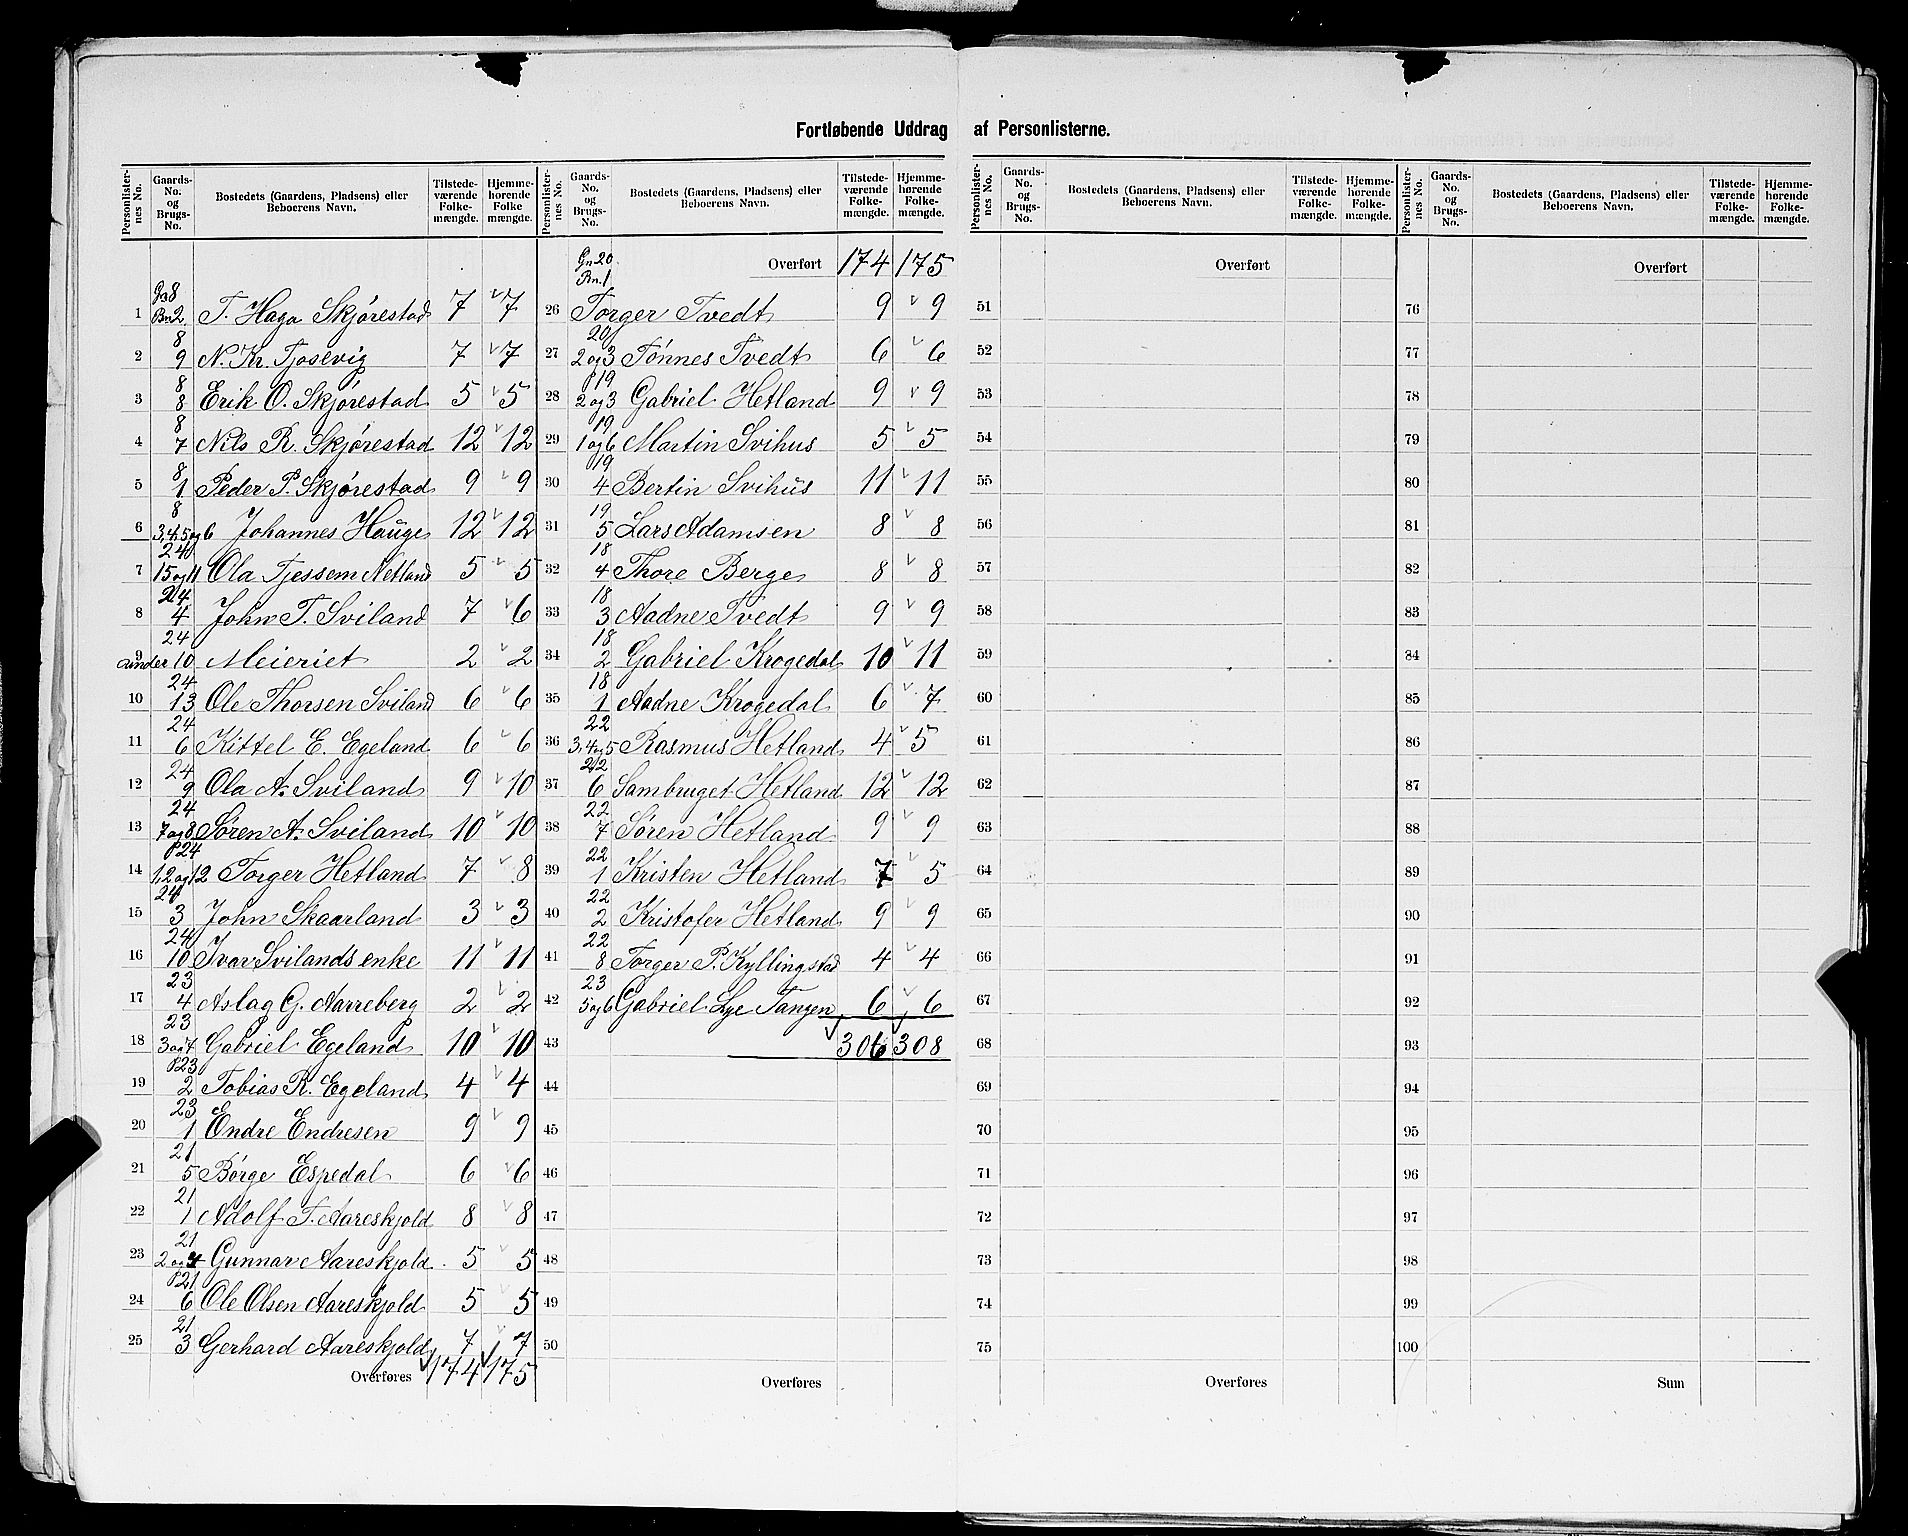 Fortløbende Uddrag af Personlisterne.
Personlister-nes No. Gaards-No. og Brugs-No. Bostedets (Gaardens, Pladsens) eller Beboerens Navn. Tilstede-værende Folke-mængde. Hjemme-hørende Folke-mængde.
Gn 8
1 Bn 2 T. Haga Skjørestad 7 7
8
2 9 N. Kr. Tjosevig 7 7
8
3 8 Erik O. Skjørestad 5 5
8
4 7 Nils R. Skjørestad 12 12
8
5 1 Peder P. Skjørestad 9 9
8
6 3,4,5 og 6 Johannes Hauge 12 12
24
7 15 og 11 Ola Tjessem Netland 5 5
24
8 4 John T. Sviland 7 6
24
9 under 10 Meieriet 2 2
24
10 13 Ole Thorsen Sviland 6 6
24
11 6 Kittel E. Egeland 6 6
24
12 9 Ola A. Sviland 9 10
24
13 7 og 8 Søren A. Sviland 10 10
24
14 1,2 og 12 Torger Hetland 7 8
24
15 3 John Skaarland 3 3
24
16 10 Ivar Svilands enke 11 11
23
17 4 Aslag G. Aarreberg 2 2
23
18 3 og 4 Gabriel Egeland 10 10
23
19 2 Tobias R. Egeland 4 4
23
20 1 Endre Endresen 9 9
21
21 5 Børge Espedal 6 6
21
22 1 Adolf T. Aareskjold 8 8
21
23 2 og 4 Gunnar Aareskjold 5 5
21
24 6 Ole Olsen Aareskjold 5 5
21
25 3 Gerhard Aareskjold 7 7
Overføres 174 175
Personlister-nes No. Gaards-No. og Brugs-No. Bostedets (Gaardens, Pladsens) eller Beboerens Navn. Tilstede-værende Folke-mængde. Hjemme-hørende Folke-mængde.
Gn 20 Overført 174 175
Bn. 1
26 Torger Tvedt 9 9
20
27 2 og 3 Tønnes Tvedt 6 6
19
28 2 og 3 Gabriel Hetland 9 9
19
29 1 og 6 Martin Svihus 5 5
19
30 4 Bertin Svihus 11 11
19
31 5 Lars Adamsen 8 8
18
32 4 Thore Berge 8 8
18
33 3 Aadne Tvedt 9 9
18
34 2 Gabriel Krogedal 10 11
18
35 1 Aadne Krogedal 6 7
22
36 3, 4 og 5 Rasmus Hetland 4 5
22
37 6 Sambruget Hetland 12 12
22
38 7 Søren Hetland 9 9
22
39 1 Kristen Hetland 7 5
22
40 2 Kristofer Hetland 9 9
22
41 8 Torger P. Kyllingstad 4 4
23
42 5 og 6 Gabriel Lye Tangen 6 6
43 306 308
44
45
46
47
48
49
50
Overføres
Personlister-nes No. Gaards-No. og Brugs-No. Bostedets (Gaardens, Pladsens) eller Beboerens Navn. Tilstede-værende Folke-mængde. Hjemme-hørende Folke-mængde.
Overført
51
52
53
54
55
56
57
58
59
60
61
62
63
64
65
66
67
68
69
70
71
72
73
74
75
Overføres
Personlister-nes No. Gaards-No. og Brugs-No. Bostedets (Gaardens, Pladsens) eller Beboerens Navn. Tilstede-værende Folke-mængde. Hjemme-hørende Folke-mængde.
Overført
76
77
78
79
80
81
82
83
84
85
86
87
88
89
90
91
92
93
94
95
96
97
98
99
100
Sum